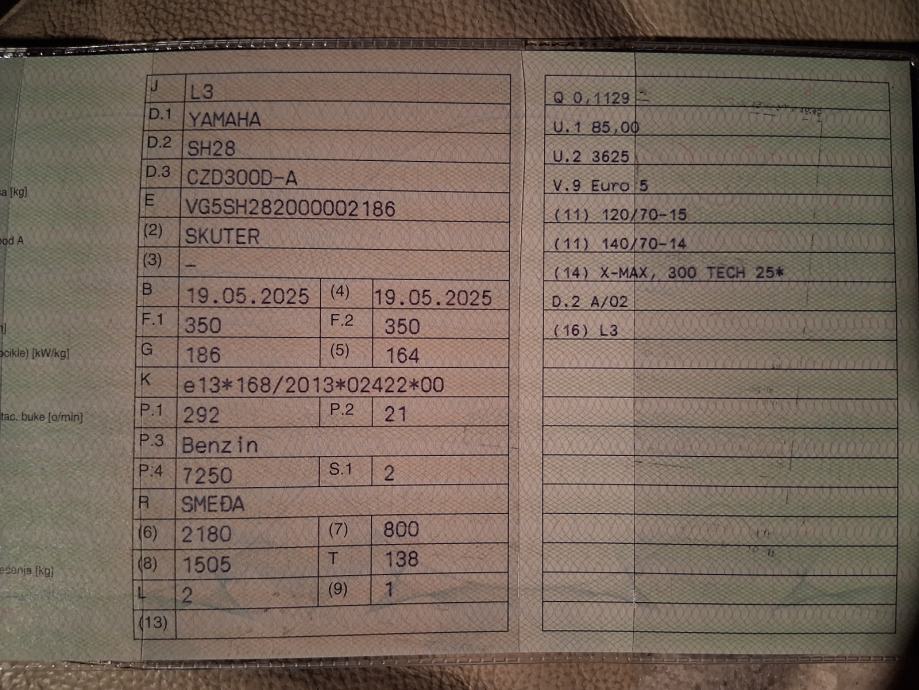 J L3
D.1 YAMAHA
D.2 SH28
D.3 CZD300D-A
E VG5SH282000002186
(2) SKUTER
(3) –
B 19.05.2025 (4) 19.05.2025
F.1 350 F.2 350
G 186 (5) 164
K e13*168/2013*02422*00
P.1 292 P.2 21
P.3 Benzin
P.4 7250 S.1 2
R SMEĐA
(6) 2180 (7) 800
(8) 1505 T 138
L 2 (9) 1
(13)
Q 0,1129
U.1 85,00
U.2 3625
V.9 Euro 5
(11) 120/70-15
(11) 140/70-14
(14) X-MAX, 300 TECH 25*
D.2 A/02
(16) L3
[kg]
A
[kW/kg]
buke [o/min]
[kg]